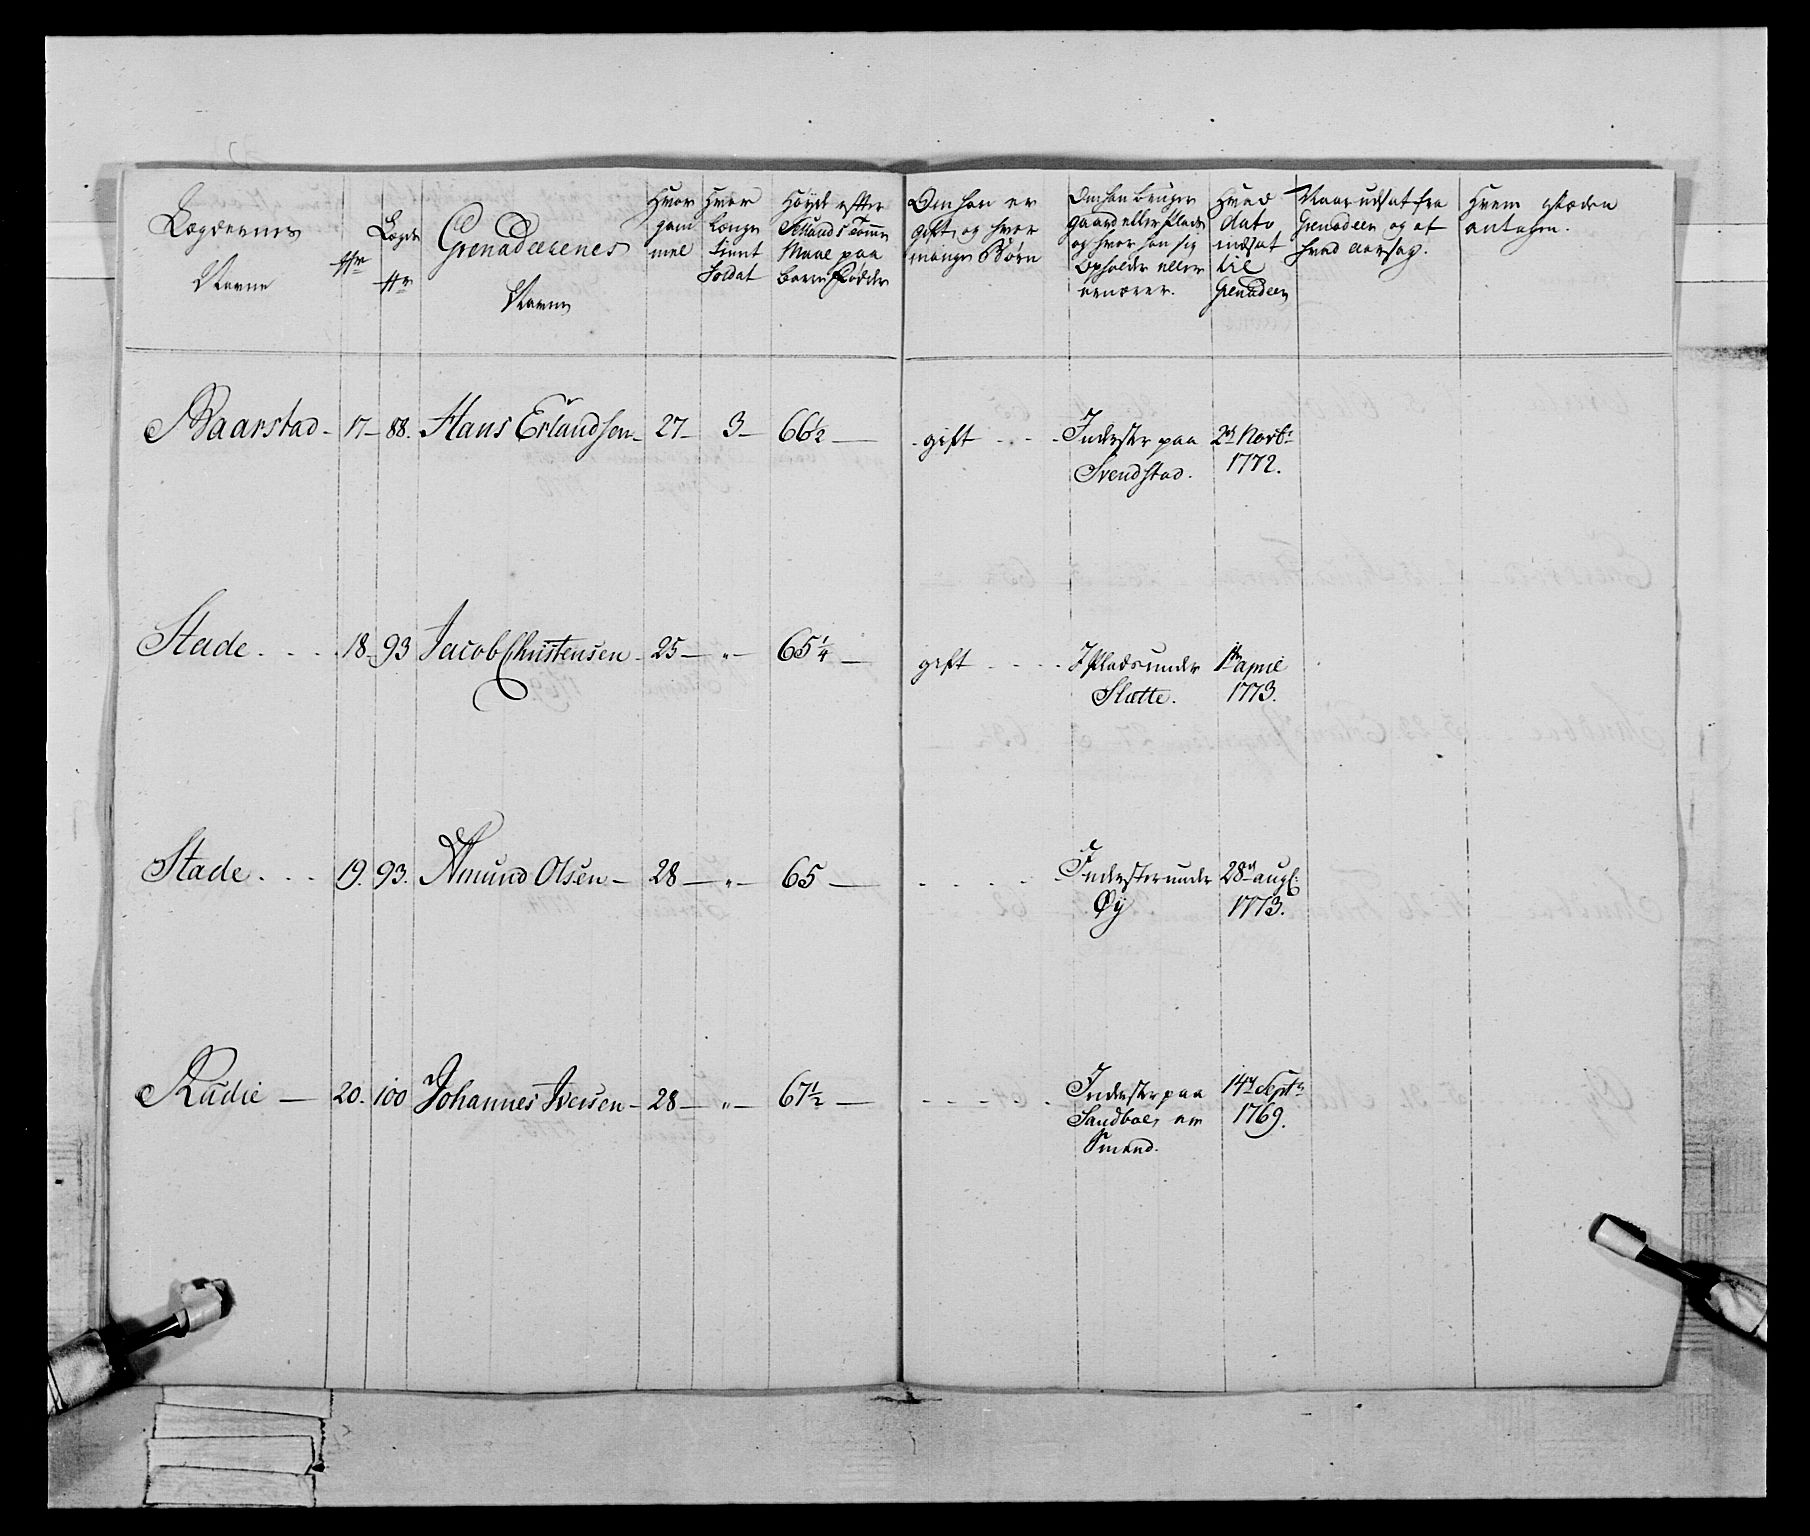 Lægdernes
Navne
Nr
Lægds
Nr
Grenadeerenes
Navne
Hvor
gam
mel
Hvor
længe
tient
Soldat
Høyde efter
Sællands Tomme
Maal paa
bare Fødder
Om han er
gift, og hvor
mange Børn
Om han bruger
gaard eller Plads
og hvor han sig
opholder eller
ernærer.
Hvad
dato
indsat
til
Grenadeer
Naar udsat fra
Grenadeer og af
hvad aarsag.
Hvem i steden
antagen.
Baarstad - 17 - 88. Hans Erlandsen - 27 - 3 - 66½ — gift - - - Inderster paa 2d Novbr
Svendstad. 1772.
Stade . . . . 18 - 93 Jacob Christensen - 25 — „ - 65¼ — gift - - - - I Plads under 1ste april
Slatte. 1773.
Stade . . . 19. 93. Amund Olsen - 28 — „ - 65 — - - - - Inderster under 28d aug:
Øy 1773.
Rudie — 20. 100 Johannes Iversen - 28 — „ - 67½ — - - - - Inderster paa 14d Septr
Sandboe, en 1769.
Smed.